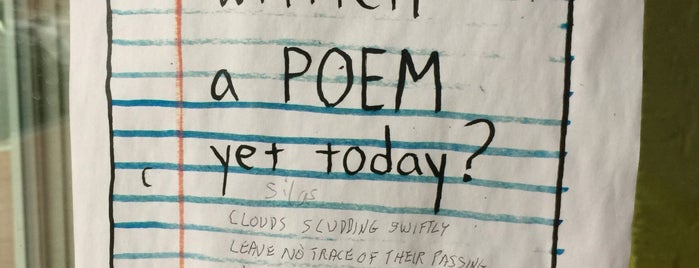 written
a POEM
yet today?
Silas
CLOUDS SCUDDING SWIFTLY
LEAVE NO TRACE OF THEIR PASSING